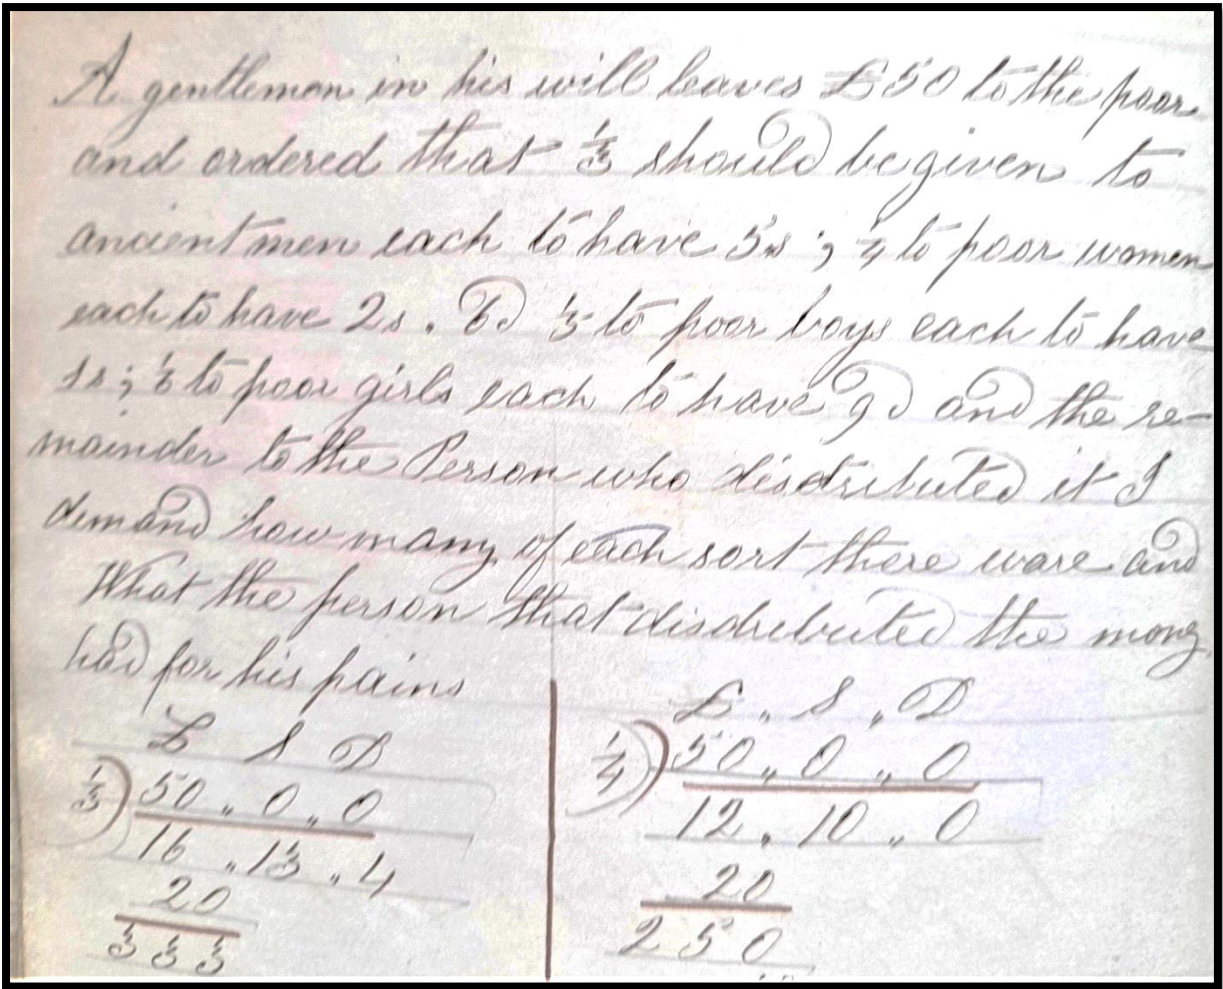 A gentleman in his will leaves £50 to the poor
and ordered that 1/3 should be given to
ancient men each to have 5s ; 1/4 to poor women
each to have 2s . 6d 1/5 to poor boys each to have
1s ; 1/6 to poor girls each to have 9d and the re-
mainder to the Person who disdributed it I
demand how many of each sort there ware and
What the person that disdrebuted the mony
had for his pains
£ S D
1/3) 50 „ 0 „ 0
16 „ 13 „ 4
20
333
£ „ S „ D
1/4) 50 „ 0 „ 0
12 „ 10 „ 0
20
250